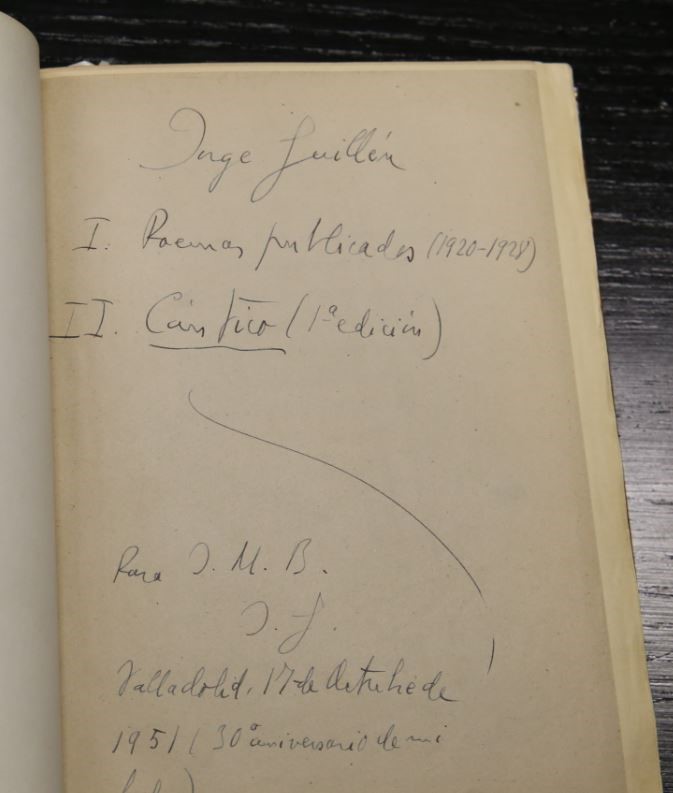 Jorge Guillén
I. Poemas publicados (1920-1928)
II. Cántico (1ª edición)
Para J. M. B.
J. G.
Valladolid, 17 de Octubre de
1951 (30º aniversario de mi